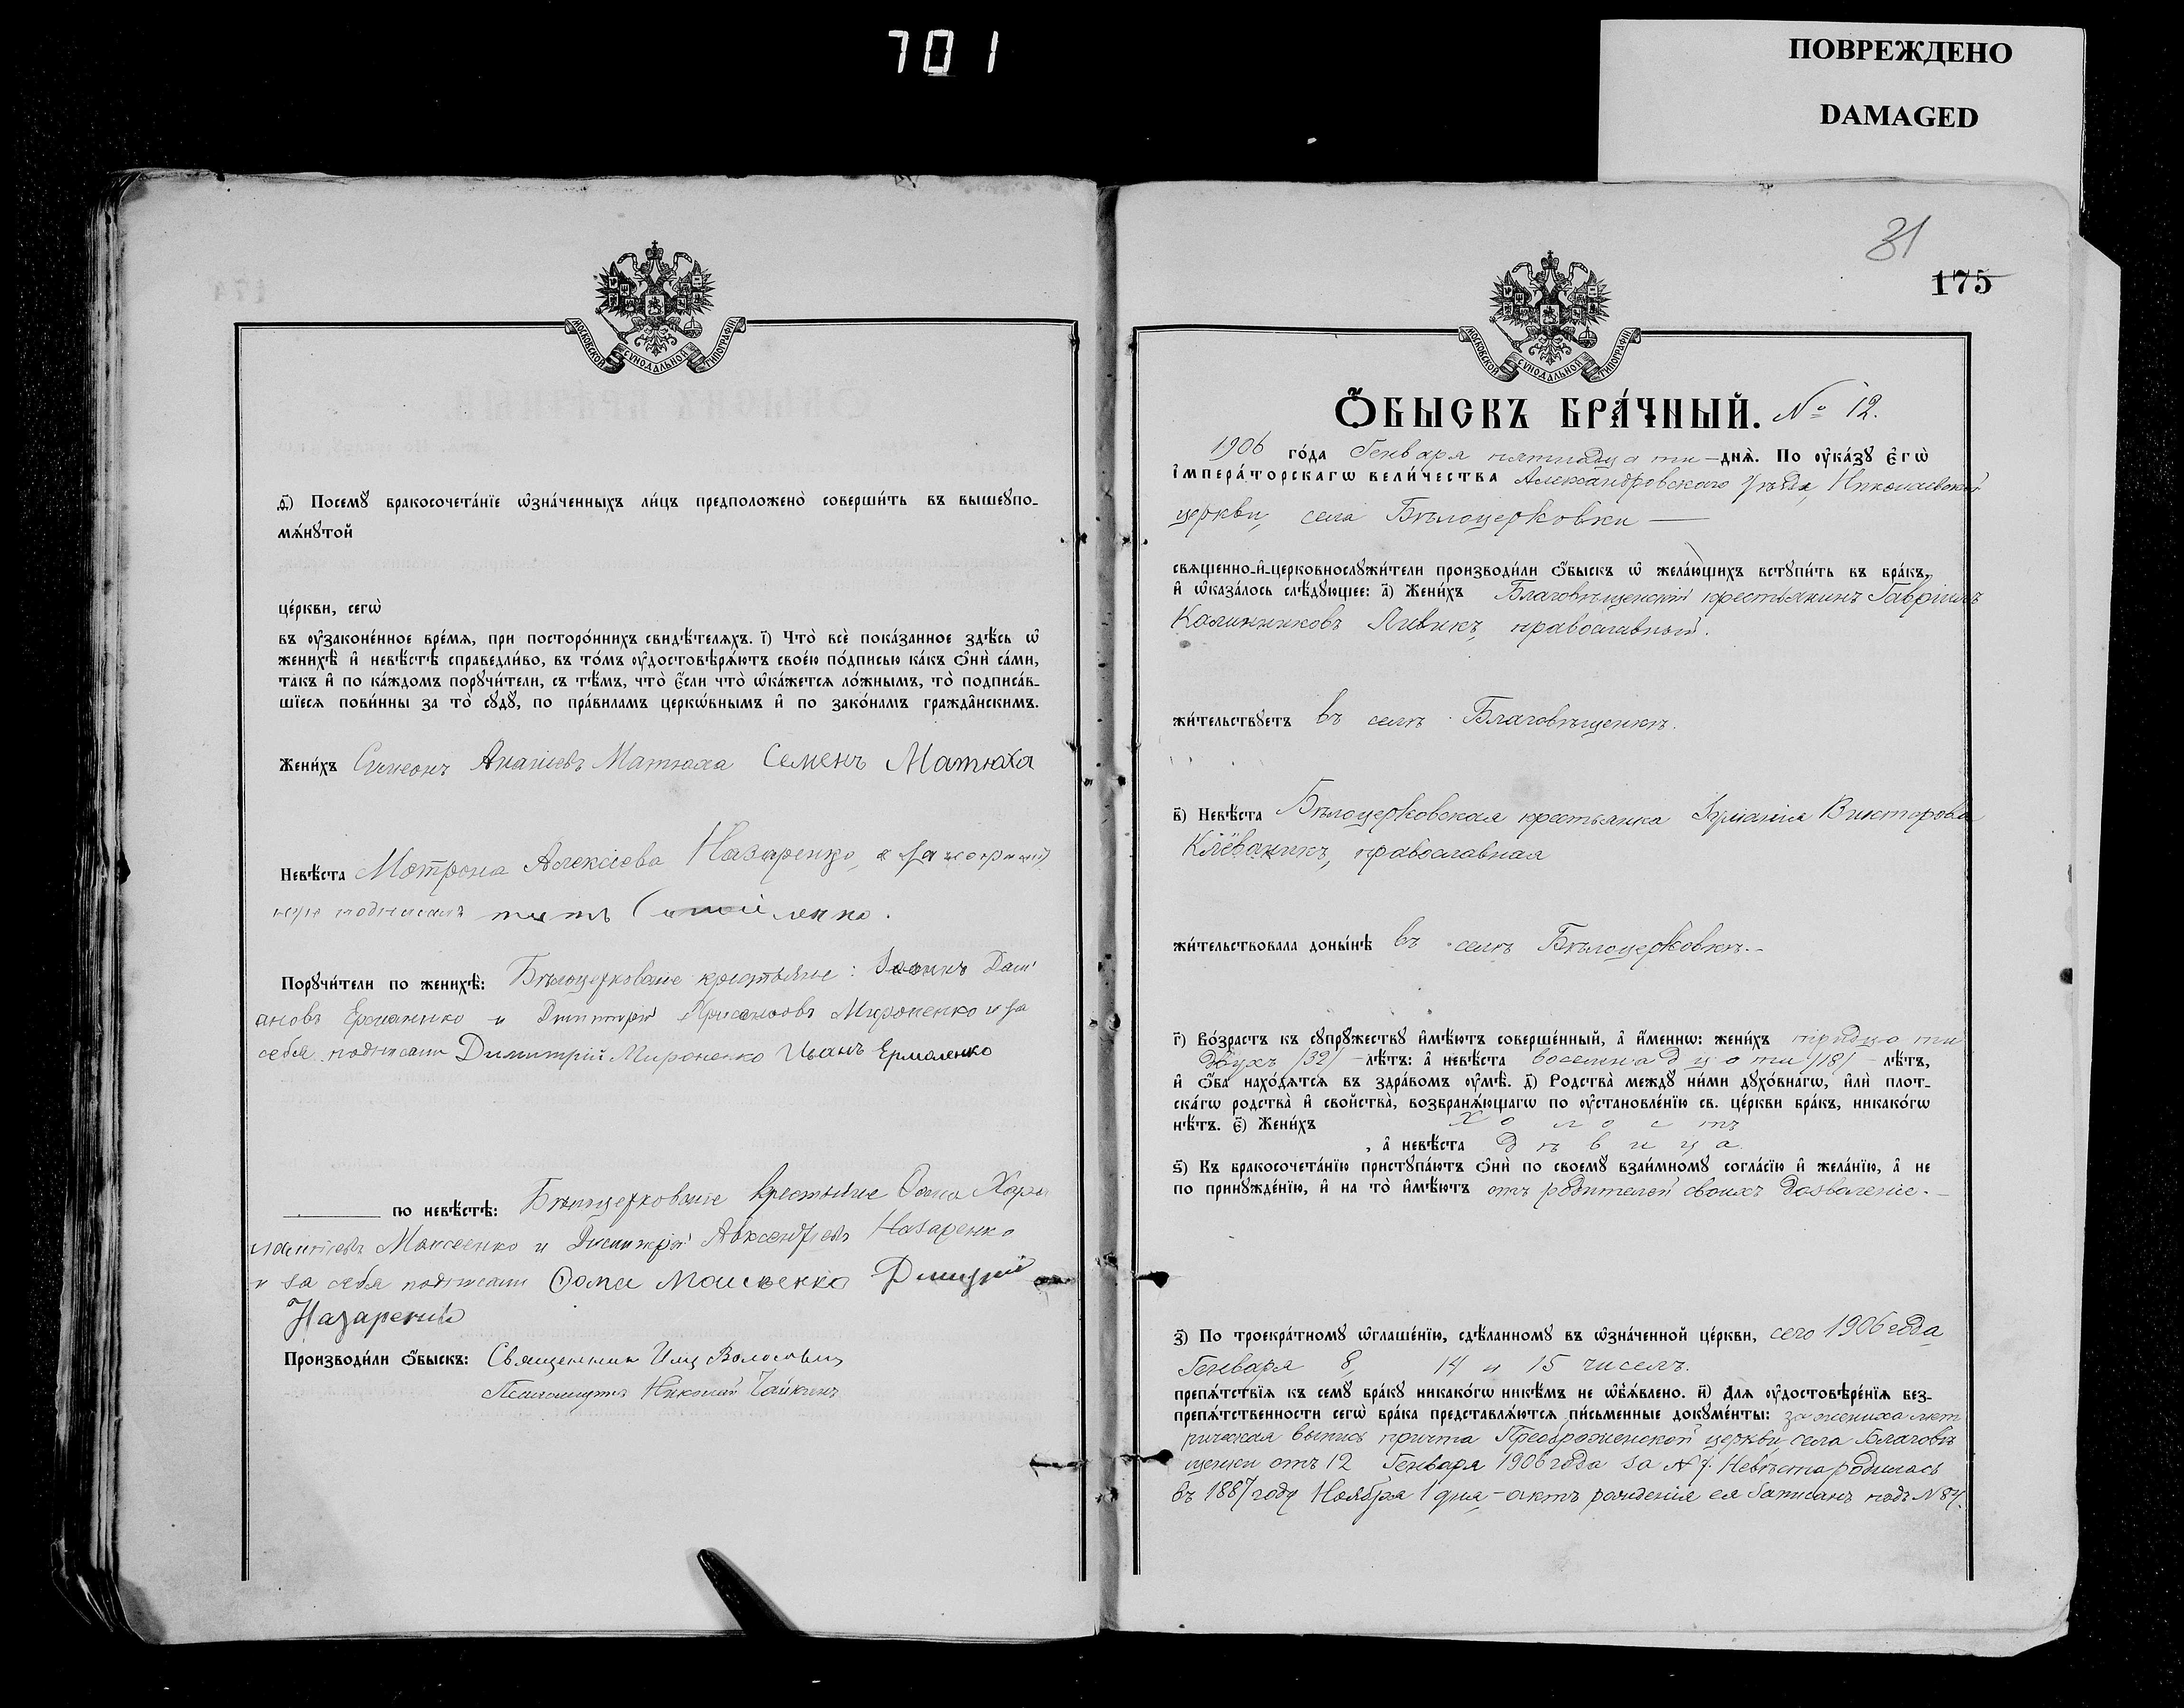 701
ПОВРЕЖДЕНО
DAMAGED
МОСКОВСКОЙ СѴНОДАЛЬНОЙ ТИПОГРАФІИ.
ѳ҃) Посемꙋ̀ бракосочета́нїе ѡ҆зна́ченныхъ ли́цъ предположено̀ соверши́ть въ вышеꙋпо-
мѧ́нꙋтой
це́ркви, сегѡ̀
въ ᲂу҆законе́нное вре́мѧ, при посторо́ннихъ свидѣ́телѧхъ. і҃) Что̀ всѐ пока́занное здѣ́сь ѡ҆
женихѣ̀ и҆ невѣ́стѣ справедли́во, въ то́мъ ᲂу҆достовѣрѧ́ютъ свое́ю по́дписью ка́къ ѻ҆нѝ са́ми,
та́къ и҆ по ка́ждомъ порꙋчи́тели, съ тѣ́мъ, что̀ є҆́сли что̀ ѡ҆ка́жетсѧ ло́жнымъ, то̀ подписа́в-
шїесѧ пови́нны за то̀ сꙋдꙋ̀, по пра́виламъ церко́внымъ и҆ по зако́намъ гражда́нскимъ.
Жени́хъ Симеонъ Ананіевъ Матюха Семенъ Матюха
Невѣ́ста Матрона Алексіева Назаренко,
подписалъ
Порꙋчи́тели по женихѣ̀: Бѣлоцерковскіе крестьяне: Іоаннъ
Ермаленко и Димитрій Мироненко и за
себя подписали Димитрій Мироненко Иванъ Ермоленко
по невѣ́стѣ: Бѣлоцерковскіе крестьяне Ѳома
Моисеенко и Димитрій Авксентіевъ Назаренко
и за себя подписали Ѳома Моисеенко Дмитрий
Назаренко
Производи́ли ѻ҆́быскъ: Священникъ Илія
Псаломщикъ Николай Чайкинъ
31
175
МОСКОВСКОЙ СѴНОДАЛЬНОЙ ТИПОГРАФІИ.
Ѻ҆́БЫСКЪ БРА́ЧНЫЙ. № 12.
1906 го́да Генваря пятнадцати – днѧ̀. По ᲂу҆ка́зꙋ є҆гѡ̀
і҆мпера́торскагѡ вели́чества Александровскаго уѣзда, Николаевской
церкви, села Бѣлоцерковки —
свѧще́нно-и҆-церковнослꙋжи́тели производи́ли ѻ҆́быскъ ѡ҆ жела́ющихъ встꙋпи́ть въ бра́къ,
и҆ ѡ҆каза́лось слѣ́дꙋющее: а҃) Жени́хъ Благовѣщенскій крестьянинъ Гавріилъ
Калинниковъ Пивикъ, православный.
жи́тельствꙋетъ въ селѣ Благовѣщенкѣ.
в҃) Невѣ́ста Бѣлоцерковская крестьянка Іуліанія Викторова
Клёваникъ, православная
жи́тельствовала доны́нѣ въ селѣ Бѣлоцерковкѣ.–
г҃) Во́зрастъ къ сꙋпрꙋ́жествꙋ и҆мѣ́ютъ соверше́нный, а҆ и҆́менно: жени́хъ тридцати
двухъ /32/ – лѣ́тъ: а҆ невѣ́ста восемнадцати /18/ – лѣ́тъ,
и҆ ѻ҆́ба нахо́дѧтсѧ въ здра́вомъ ᲂу҆мѣ̀. д҃) Родства̀ междꙋ̀ ни́ми дꙋхо́внагѡ, и҆лѝ плот-
ска́гѡ родства̀ и҆ свойства̀, возбранѧ́ющагѡ по ᲂу҆становле́нїю св. це́ркви бра́къ, никако́гѡ
нѣ́тъ. є҃) Жени́хъ холостъ
, а҆ невѣ́ста дѣвица.
ѕ҃) Къ бракосочета́нїю пристꙋпа́ютъ ѻ҆нѝ по своемꙋ̀ взаи́мномꙋ согла́сїю и҆ жела́нїю, а҆ не
по принꙋжде́нїю, и҆ на то̀ и҆мѣ́ютъ отъ родителей своихъ дозволеніе. –
з҃) По троекра́тномꙋ ѡ҆глаше́нїю, сдѣ́ланномꙋ въ ѡ҆зна́ченной це́ркви, сего 1906 года
Генваря 8, 14 и 15 чиселъ.
препѧ́тствїѧ къ семꙋ̀ бра́кꙋ никако́гѡ никѣ́мъ не ѡ҆б̾ѧ́влено. и҃) Для ᲂу҆достовѣре́нїѧ без-
препѧ́тственности сегѡ̀ бра́ка представлѧ́ютсѧ пи́сьменные докꙋме́нты: за жениха мет
рическая выпись причта Преображенской церкви села Благовѣ
щенки отъ 12 Генваря 1906 года за № 7. Невѣста родилась
въ 1887 году Ноября 1 дня – актъ рожденія ея записанъ подъ № 84.